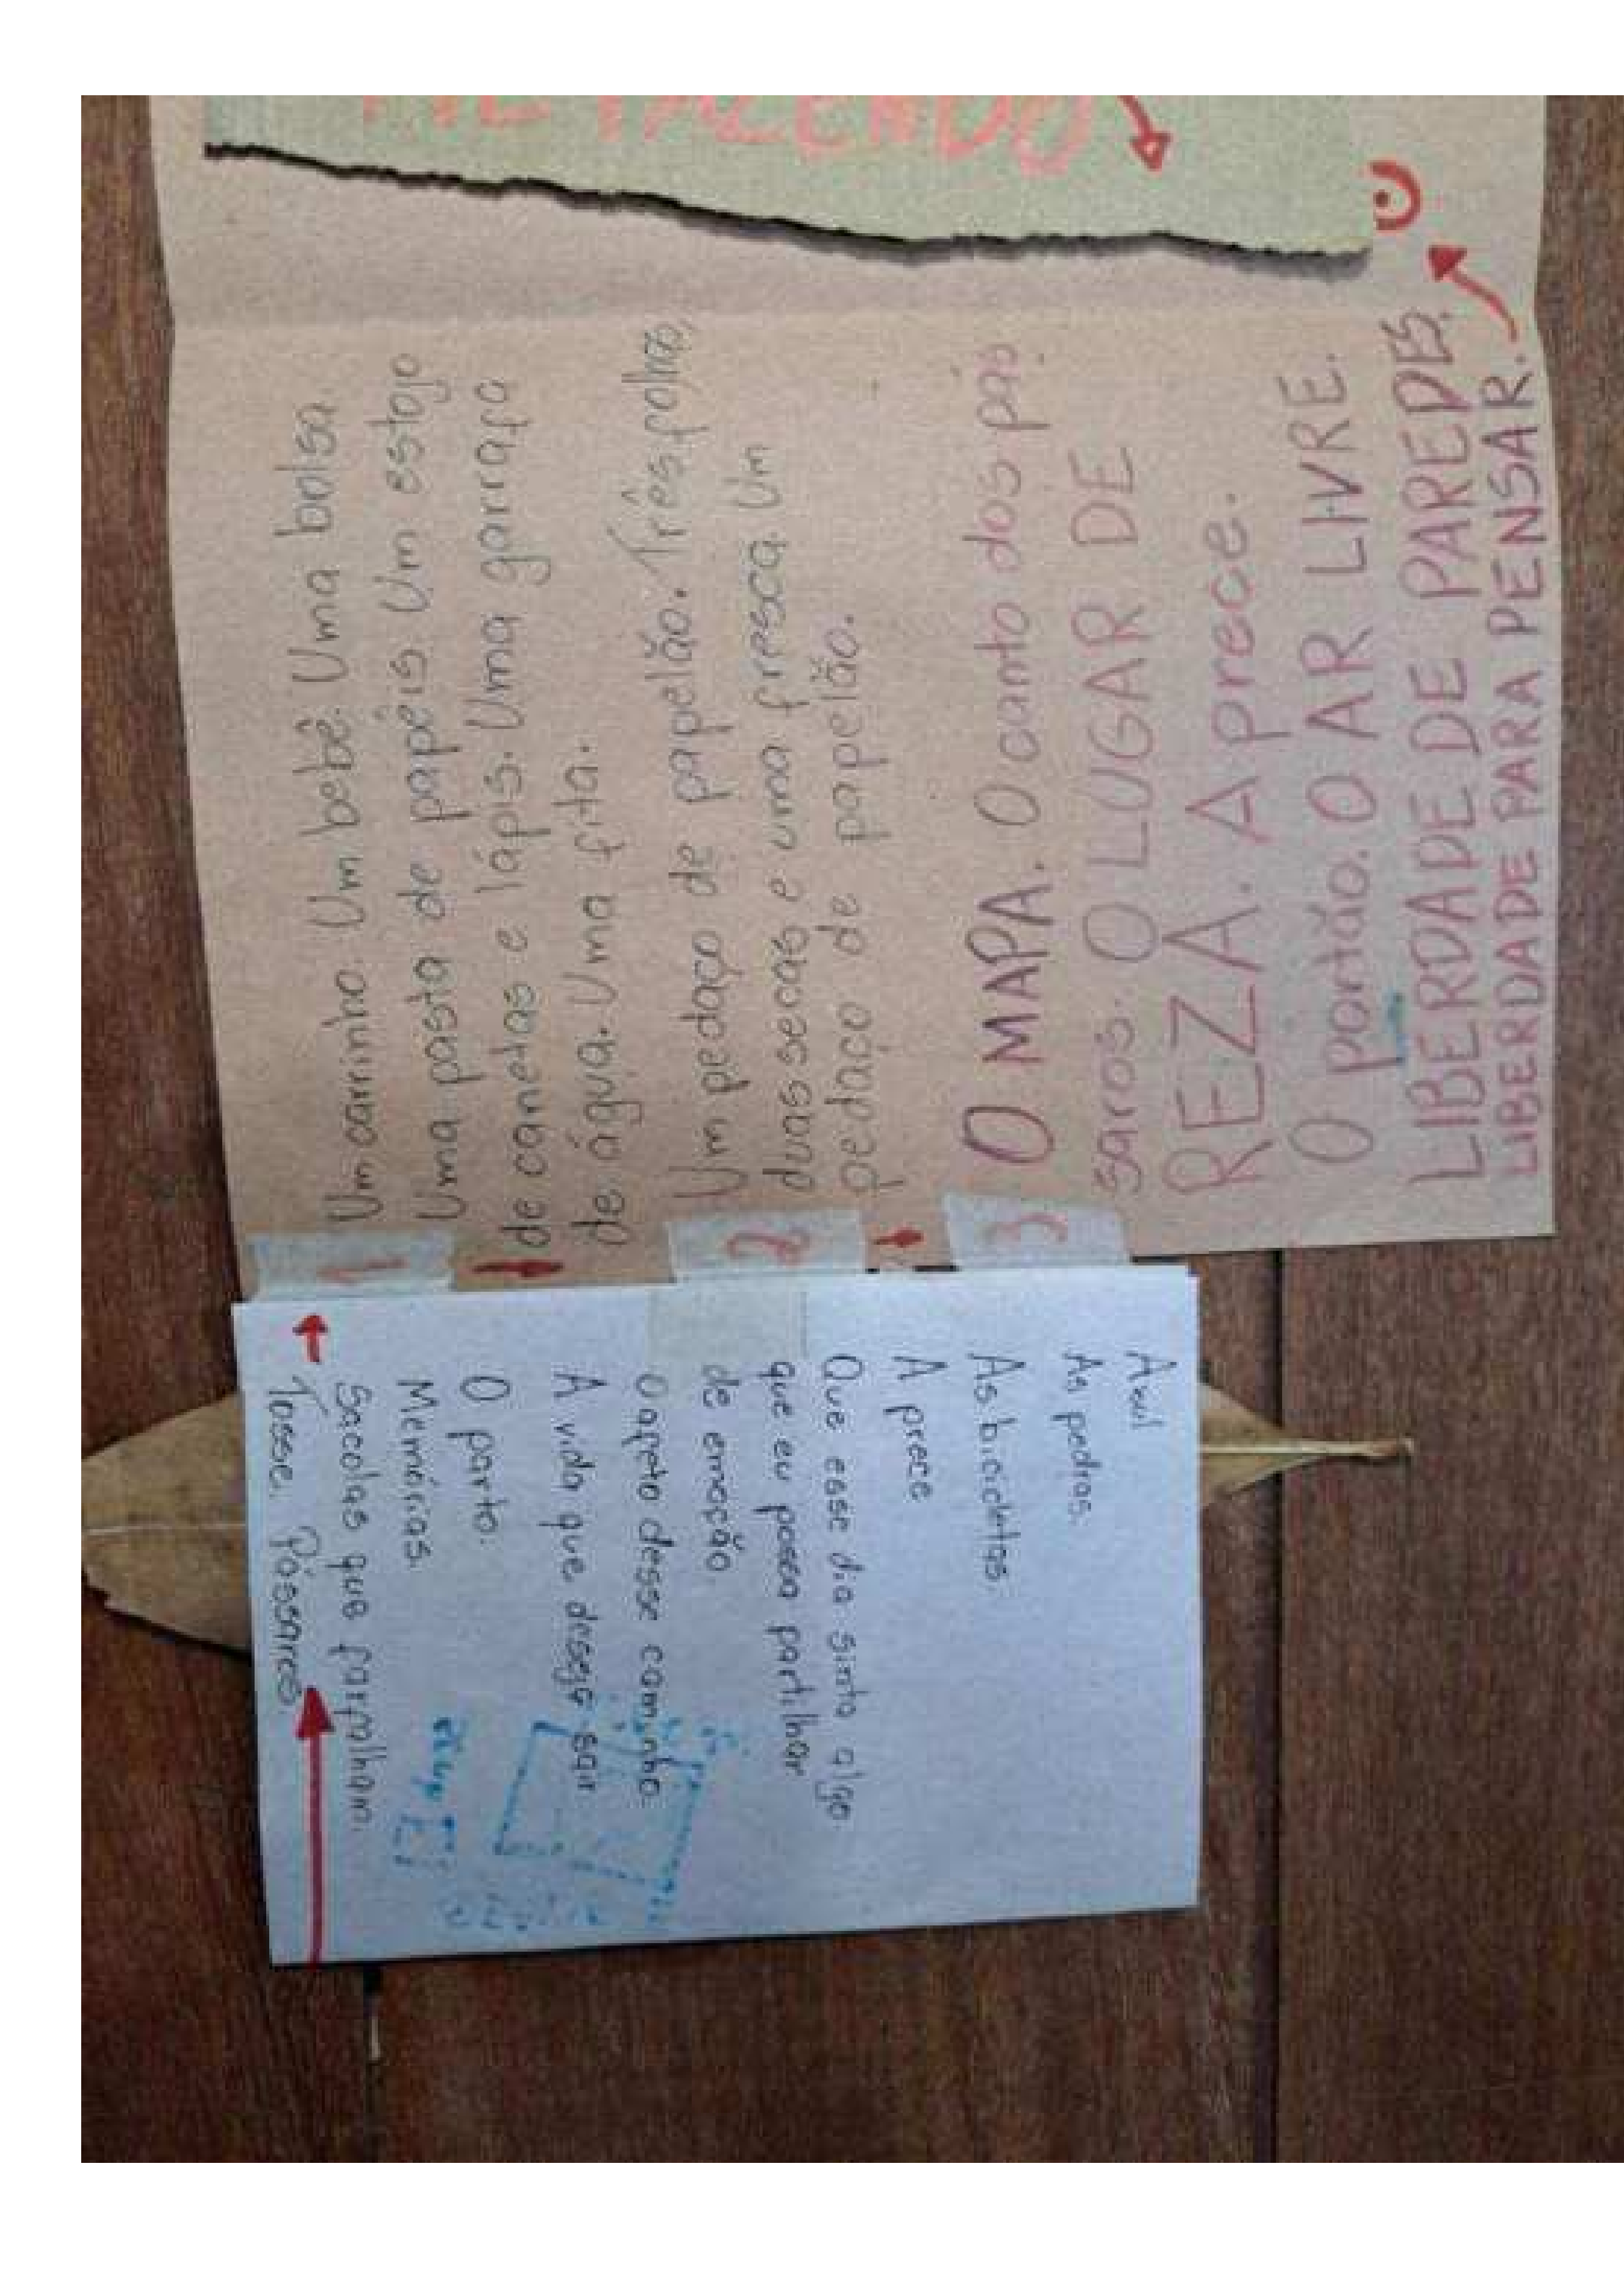 Um carrinho. Um bebê. Uma bolsa.
Uma pasta de papéis. Um estojo
de canetas e lápis. Uma garrafa
de água. Uma fita.
Um pedaço de papelão. Três folhas,
duas secas e uma fresca. Um
pedaço de papelão.
O MAPA. O canto dos pás
saros. O LUGAR DE
REZA. A prece.
O portão. O AR LIVRE.
LIBERDADE DE PAREDES.
LIBERDADE PARA PENSAR.
1
2
3
Azul
As pedras.
As bicicletas.
A prece
Que esse dia sinta algo
que eu possa partilhar
de emoção.
O afeto desse caminho.
A vida que deseja sair
O parto.
Memórias.
Sacolas que farfalham.
Tosse. Pássaros
FAZENDO